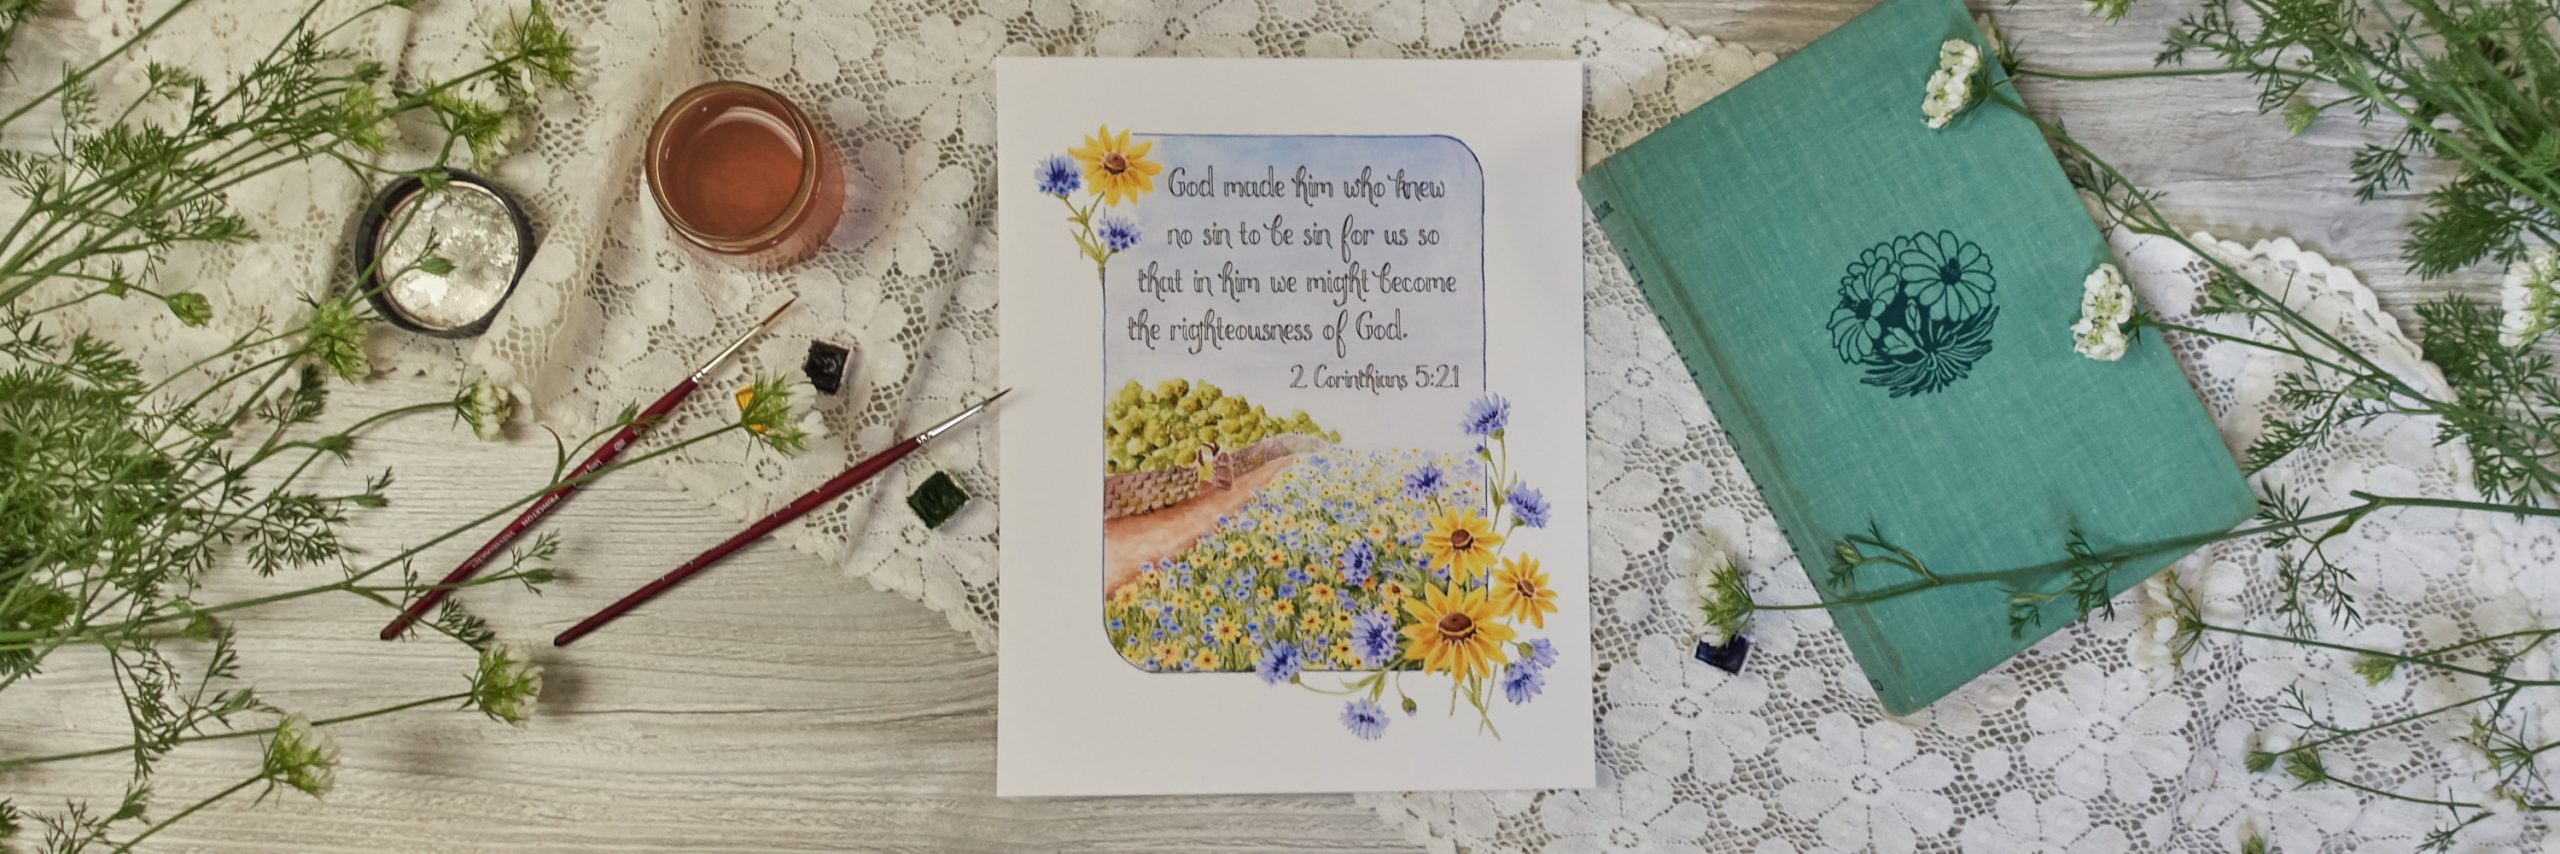 God made him who knew
no sin to be sin for us so
that in him we might become
the righteousness of God.
2 Corinthians 5:21
PRINCETON